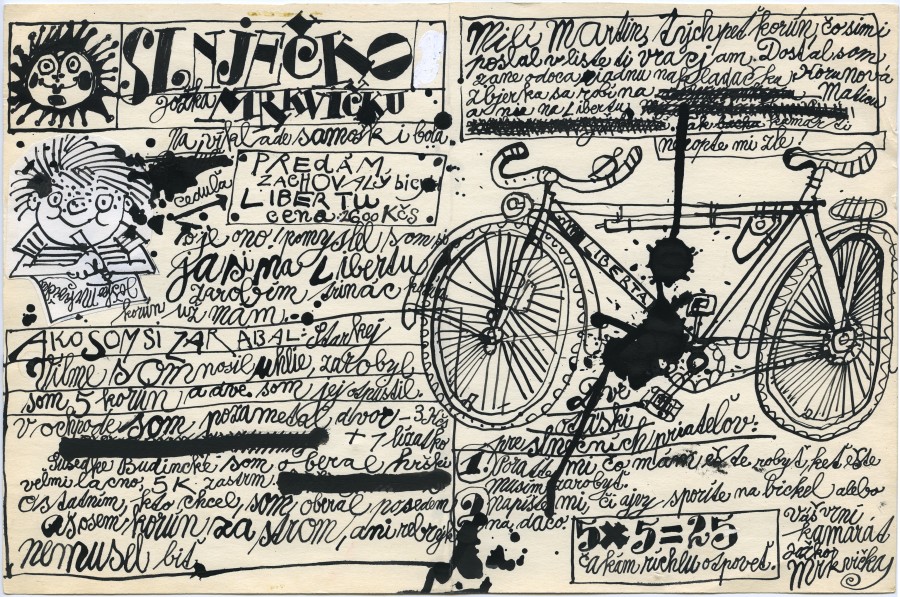 SLNJEČKO
Jožka MRKVIČKU
Na výklade samoški bola
ceduľa
PREDÁM
ZACHOVALÝ bicykl
LIBERTU
cena 1600 Kčs
To je ono pomyslel som si
ja si na Libertu
zarobím
korún už mám.
Jožko Mrkvička
AKO SOM SI ZARÁBAL: Starkej
Vilme SOM nosil uhlie, zarobyl
som 5 korún a dve som jej odpustil.
v ochrode som pozametal dvor - 3 Kčs
+ 1 lízatko
Susedke Budincké som oberal hrišky
veľmi lacno 5 K za strm
Ostadním, kto chcel, som oberal po sedem
a osem korún za strom, ani rebryk
nemusel biť.
Milí Martin, tvých peť korún čo si mi
poslal v liste ti vraciam. Dostal som
zane odoca riadnu nakladačka Rozumová
zbjerka sa robí na Maticu
a nie na Libertu
kamarát
nazopte mi žle
LIBERTA
Dve
otáski
pre slnečních priateľov:
1. Poraďte mi čo mám ešte robyť keď ešte
musím zarobyť.
2. Napíšte mi, či ajvy sporíte na bickel alebo
na dačo
5 × 5 = 25
Čakám richlu odpoveť.
váš vrní
kamarát
Jožko
Mrkvička